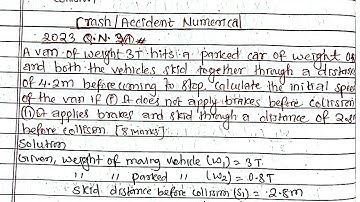 Crash/Accident Numerical
2023 Q.N. 3(A)
A van of weight 3T hits a parked car of weight
and both the vehicles skid together through a distance
of 4.2m before coming to stop, calculate the initial speed
of the van if (i) It does not apply brakes before collision
(ii) It applies brakes and skid through a distance of 2.8m
before collision. [8 marks]
Solution
Given, weight of moving vehicle (W1) = 3T
" " parked " (W2) = 0.8T
skid distance before collision (S1) = 2.8m